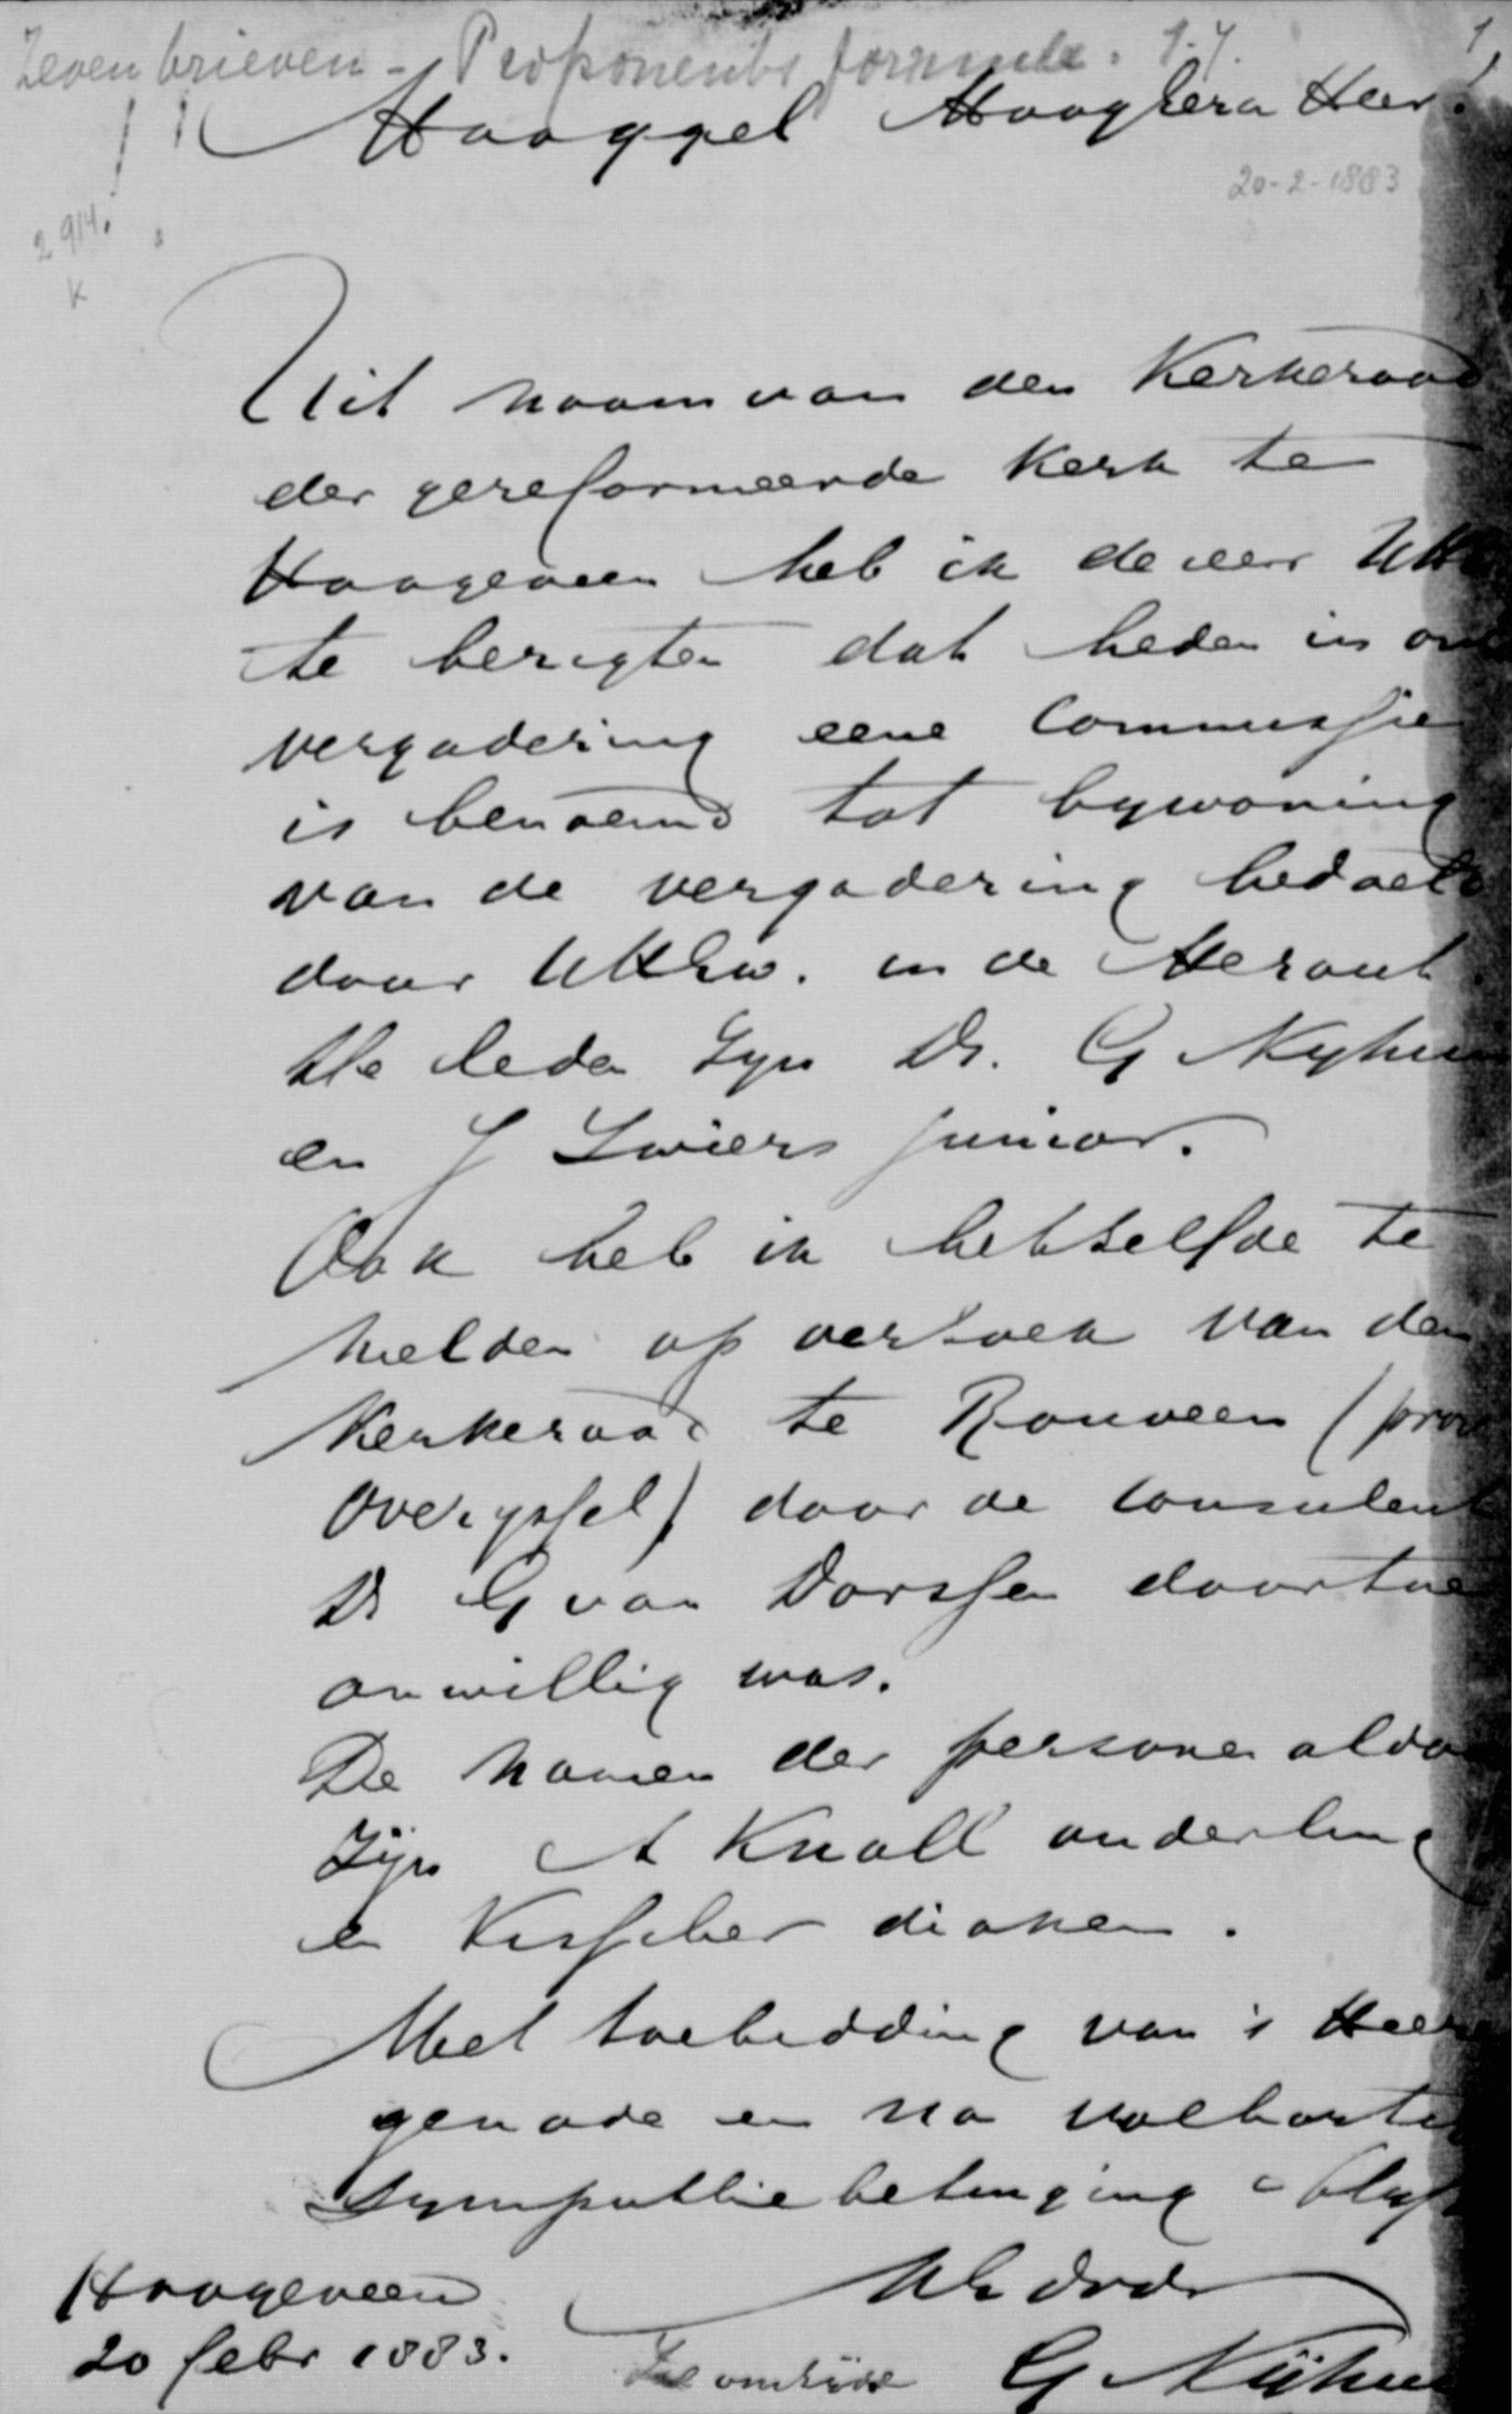 Zeven brieven - Proponents formule. 1-7. 1
Hooggel Hooggeleerde Heer!
20-2-1883
2914.
K
Uit naam van den Kerkeraad
der gereformeerde Kerk te
Hoogeveen heb ik de eer
te berigten dat heden in
vergadering eene Commissie
is benoemd tot bywoning
van de vergadering bedoeld
door UHEw. in de Heraut.
De leden zyn Ds. G Nyhuis
en J Zwiers junior.
Ook heb ik hetzelfde te
melden op verzoek van den
Kerkeraad te Rouveen (prov
Overyssel) door de consulent
Ds G van Dorssen daartoe
onwillig was.
De namen der personen aldaar
Zijn A Knoll ouderling
en Visscher diaken.
Met toebidding van 's Heeren
genade en na
sympathie betuiging
Hoogeveen
20 febr 1883.
UE dvdr
Zie omzijde G Nijhuis